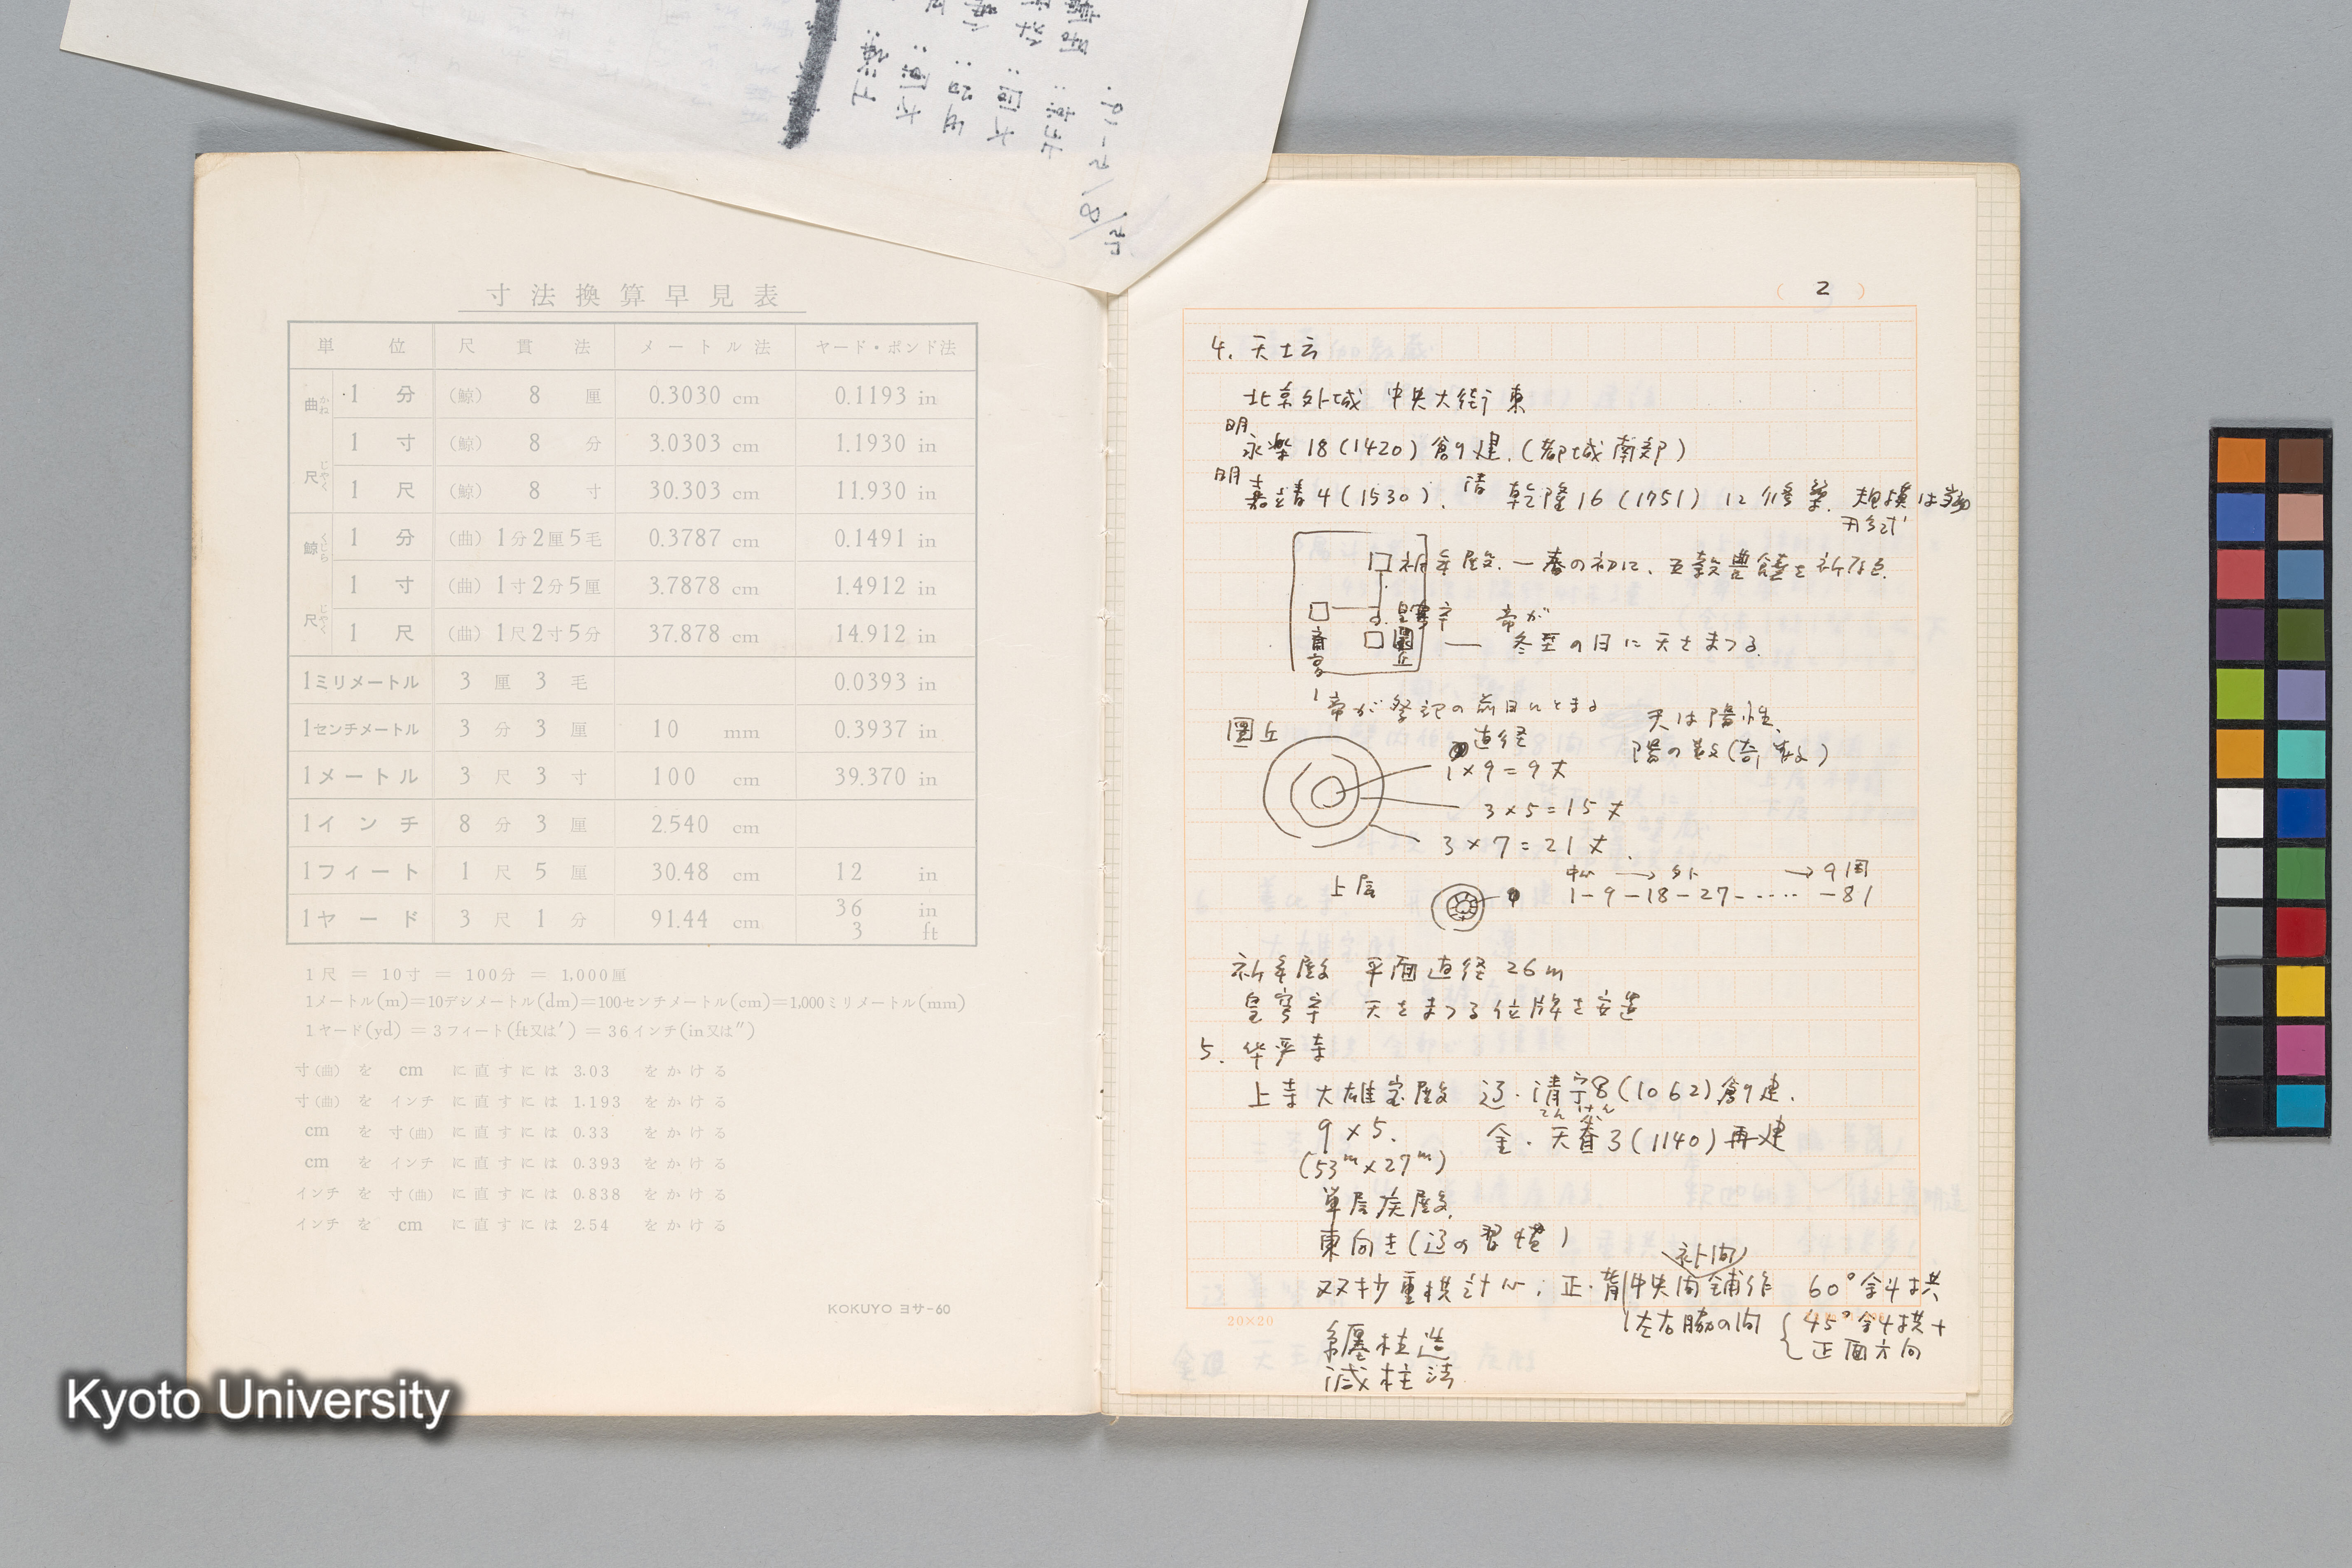 寸法換算早見表
単位 尺貫法 メートル法 ヤード・ポンド法
曲尺 かねじゃく
1分 (鯨) 8厘 0.3030 cm 0.1193 in
1寸 (鯨) 8分 3.0303 cm 1.1930 in
1尺 (鯨) 8寸 30.303 cm 11.930 in
鯨尺 くじらじゃく
1分 (曲) 1分2厘5毛 0.3787 cm 0.1491 in
1寸 (曲) 1寸2分5厘 3.7878 cm 1.4912 in
1尺 (曲) 1尺2寸5分 37.878 cm 14.912 in
1ミリメートル 3厘3毛 0.0393 in
1センチメートル 3分3厘 10 mm 0.3937 in
1メートル 3尺3寸 100 cm 39.370 in
1インチ 8分3厘 2.540 cm
1フィート 1尺5厘 30.48 cm 12 in
1ヤード 3尺1分 91.44 cm 36 in 3 ft
1尺 = 10寸 = 100分 = 1,000厘
1メートル(m)=10デシメートル(dm)=100センチメートル(cm)=1,000ミリメートル(mm)
1ヤード(yd) = 3フィート(ft又は′) = 36インチ(in又は″)
寸(曲) を cm に直すには 3.03 をかける
寸(曲) を インチ に直すには 1.193 をかける
cm を 寸(曲) に直すには 0.33 をかける
cm を インチ に直すには 0.393 をかける
インチ を 寸(曲) に直すには 0.838 をかける
インチ を cm に直すには 2.54 をかける
KOKUYO ヨサ-60
( 2 )
4. 天坛
北京外城 中央大街東
明
永楽18(1420)創建.(都城南郊)
明嘉靖4(1530). 清 乾隆16(1751)に修築. 規模は
形式
祈年殿. 一春の初に、五穀豊饒を祈る.
皇穹宇 帝が
圜丘 — 冬至の日に天をまつる.
斎宮
帝が祭祀の前日にとまる
天は陽性、
陽の数(奇数)
圜丘
直径
1×9=9丈
3×5=15丈
3×7=21丈.
上层
中心→外 →9周
1-9-18-27-‥‥-81
祈年殿 平面直径26m
皇穹宇 天をまつる位牌を安置
5. 华严寺
上寺大雄宝殿 辽・清宁8(1062)創建.
9×5. 金・天眷3(1140)再建
てんけん
(53m×27m)
単层庑殿.
東向き(辽の習慣)
補間
双抄重栱計心；正・背中央間鋪作 60°斜栱
左右脇の間 45°斜栱+
正面方向
20×20
纒柱造
減柱法
Kyoto University